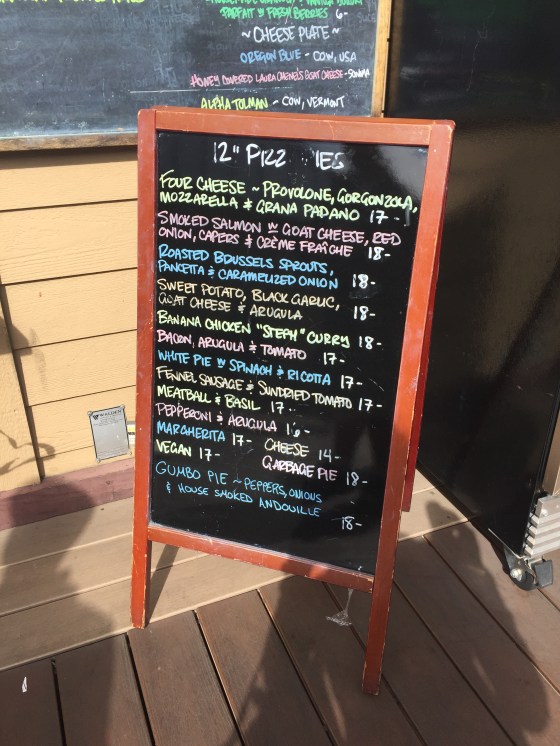 PARFAIT W FRESH BERRIES 6-
~ CHEESE PLATE ~
OREGON BLUE - COW, USA
HONEY COVERED LAURA CHENEL'S GOAT CHEESE - SONOMA
ALPHA TOLMAN - COW, VERMONT
12" PIZZ IES
FOUR CHEESE ~ PROVOLONE, GORGONZOLA,
MOZZARELLA & GRANA PADANO 17-
SMOKED SALMON W GOAT CHEESE, RED
ONION, CAPERS & CRÈME FRAÎCHE 18-
ROASTED BRUSSELS SPROUTS,
PANCETTA & CARAMELIZED ONION 18-
SWEET POTATO, BLACK GARLIC,
GOAT CHEESE & ARUGULA 18-
BANANA CHICKEN "STEPH" CURRY 18-
BACON, ARUGULA & TOMATO 17-
WHITE PIE W SPINACH & RICOTTA 17-
FENNEL SAUSAGE & SUNDRIED TOMATO 17-
MEATBALL & BASIL 17.
PEPPERONI & ARUGULA
MARGHERITA 17- CHEESE 14-
VEGAN 17- GARBAGE PIE 18-
GUMBO PIE ~ PEPPERS, ONIONS
& HOUSE SMOKED ANDOUILLE
18-